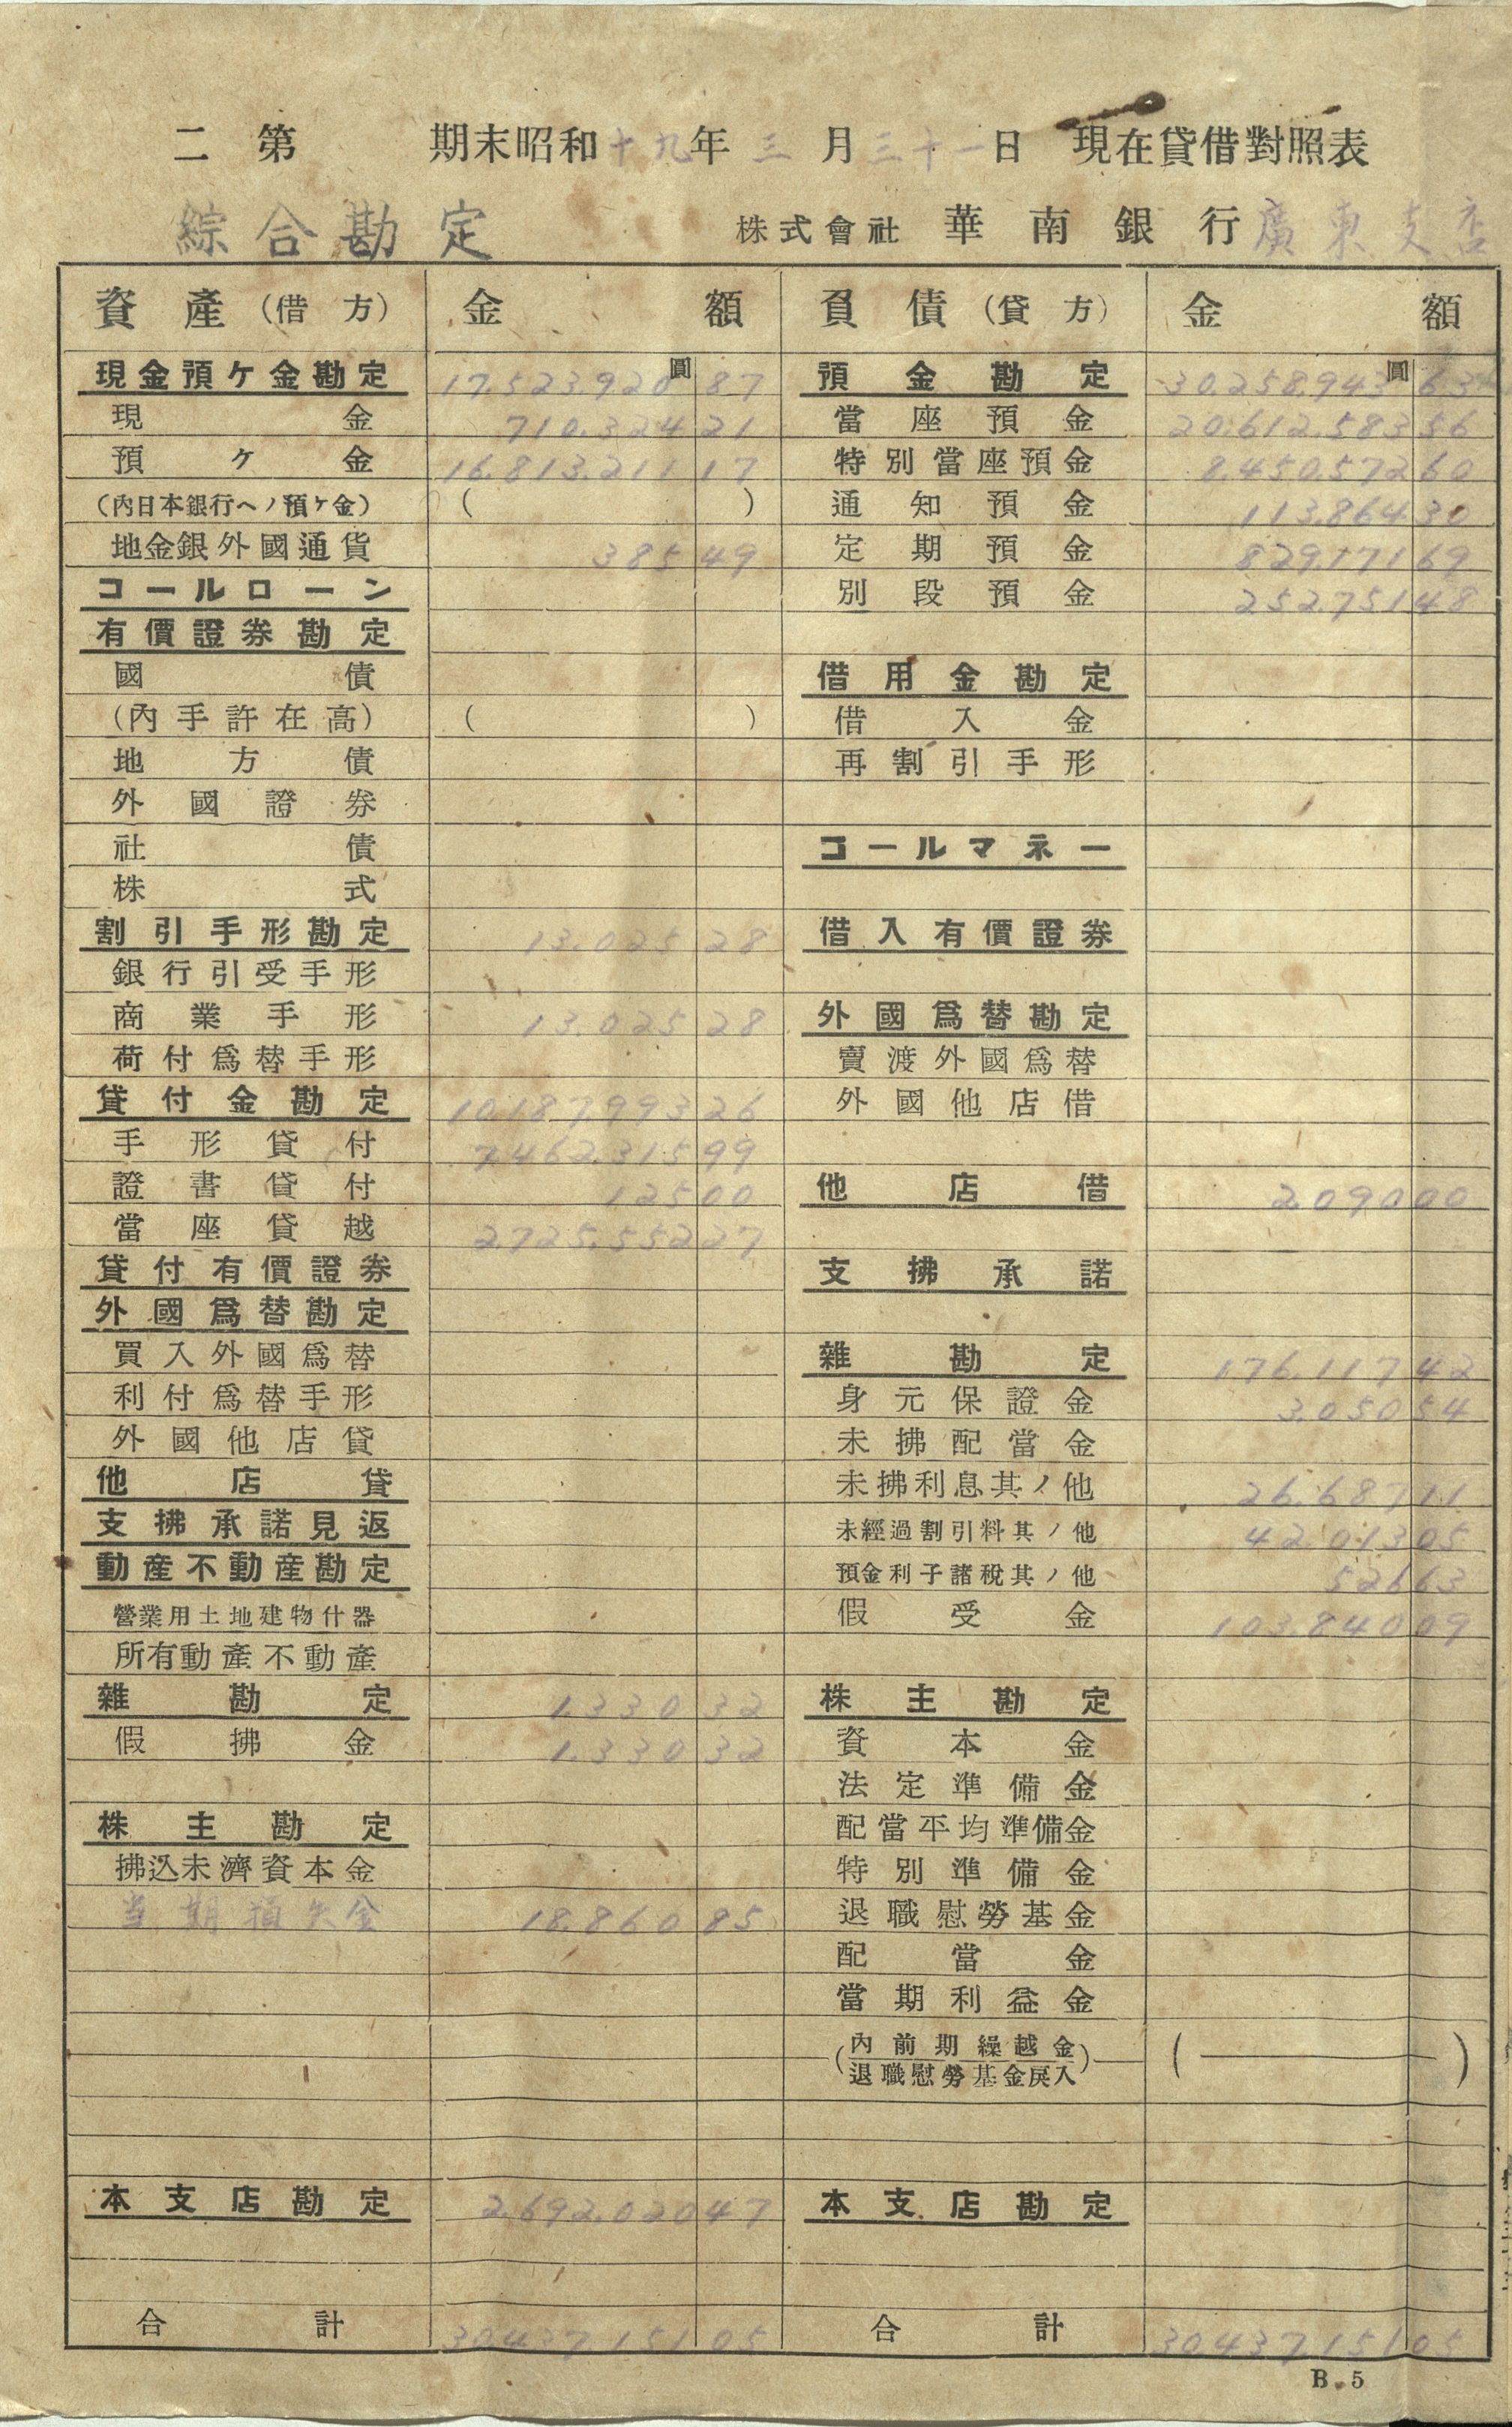 二 第 期末昭和十九年三月三十一日 現在貸借對照表
綜合勘定 株式會社 華南銀行廣東支店
資產(借方) 金額 負債(貸方) 金額
現金預ケ金勘定 17.523.920圓87 預金勘定 30.258.943圓63
現金 710.324 21 當座預金 20.612.583 56
預ケ金 16.813.211 17 特別當座預金 8.450.572 60
(內日本銀行ヘノ預ケ金) ( ) 通知預金 113.864 30
地金銀外國通貨 385 49 定期預金 829.171 69
コールローン 別段預金 252.751 48
有價證券勘定
國債 借用金勘定
(內手許在高) ( ) 借入金
地方債 再割引手形
外國證券
社債 コールマネー
株式
割引手形勘定 13.025 28 借入有價證券
銀行引受手形
商業手形 13.025 28 外國爲替勘定
荷付爲替手形 賣渡外國爲替
貸付金勘定 10.187.993 26 外國他店借
手形貸付 7.462.315 99
證書貸付 125 00 他店借 2.090 00
當座貸越 2.725.552 27
貸付有價證券 支拂承諾
外國爲替勘定
買入外國爲替 雜勘定 176.117 42
利付爲替手形 身元保證金 3.050 54
外國他店貸 未拂配當金
他店貸 未拂利息其ノ他 26.687 11
支拂承諾見返 未經過割引料其ノ他 42.013 05
動產不動產勘定 預金利子諸稅其ノ他 526 63
營業用土地建物什器 假受金 103.840 09
所有動產不動產
雜勘定 1.330 32 株主勘定
假拂金 1.330 32 資本金
法定準備金
株主勘定 配當平均準備金
拂込未濟資本金 特別準備金
当期損失金 18.860 85 退職慰勞基金
配當金
當期利益金
(內前期繰越金 退職慰勞基金戾入) ( )
本支店勘定 2.692.020 47 本支店勘定
合計 30.437.151 05 合計 30.437.151 05
B.5